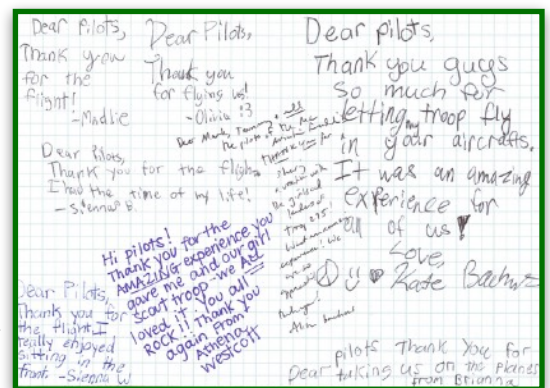 Dear Pilots,
Thank you
for the
flight!
-Madlie
Dear Pilots,
Thank you
for flying us!
-Olivia :3
Dear pilots,
Thank you guys
so much for
letting my troop fly
in your aircrafts.
It was an amazing
experience for
all of us!
Love,
Kate
Dear Pilots,
Thank you for the flight.
I had the time of my life!
-Sienna B.
all
the pilots of the
THANK YOU for
the girls and
leaders of
Troop 275!
What an amazing
experience! We
are so
Hi pilots!
Thank you for the
AMAZING experience you
gave me and our girl
scout troop - we ALL
loved it. You all
ROCK!! Thank you
again from
Athena
Westcott
Dear Pilots,
Thank you for
the flight I
really enjoyed
sitting in the
front -Sienna W
Dear pilots Thank You for
taking us on the planes
from Brianna